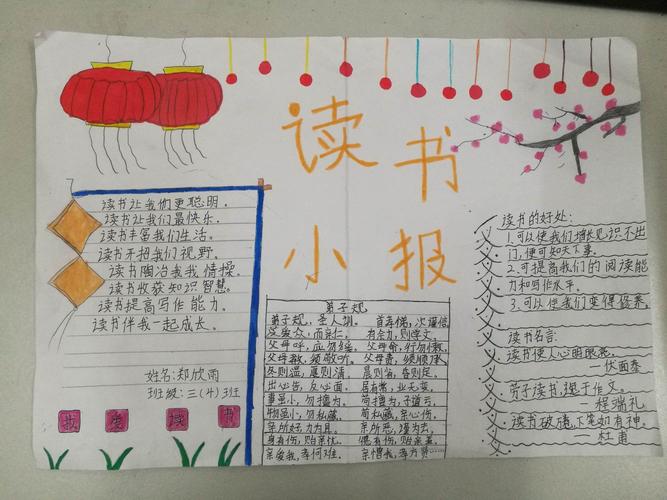 读书
小报
读书让我们更聪明。
读书让我们最快乐。
读书丰富我们生活。
读书开把我们视野。
读书陶冶我我情操。
读书收获知识智慧。
读书提高写作能力。
读书伴我一起成长。
姓名:郑欣雨
班级:三(4)班
我爱读书
弟子规
弟子规,圣人训。 首孝悌,次谨信。
泛爱众,而亲仁。 有余力,则学文。
父母呼,应勿缓。 父母命,行勿懒。
父母教,须敬听。 父母责,须顺承。
冬则温,夏则凊。 晨则省,昏则定。
出必告,反必面。 居有常,业无变。
事虽小,勿擅为。 苟擅为,子道亏。
物虽小,勿私藏。 苟私藏,亲心伤。
亲所好,力为具。 亲所恶,谨为去。
身有伤,贻亲忧。 德有伤,贻亲羞。
亲爱我,孝何难。 亲憎我,孝方贤……
读书的好处:
1.可以使我们增长见识不出
门,便可知天下事。
2.可提高我们的阅读能
力和写作水平。
3.可以使我们变得修养。
读书名言:
读书使人心明眼亮。
——伏面泰
劳于读书,逸于作文。
——程端礼
读书破万卷,下笔如有神。
——杜甫